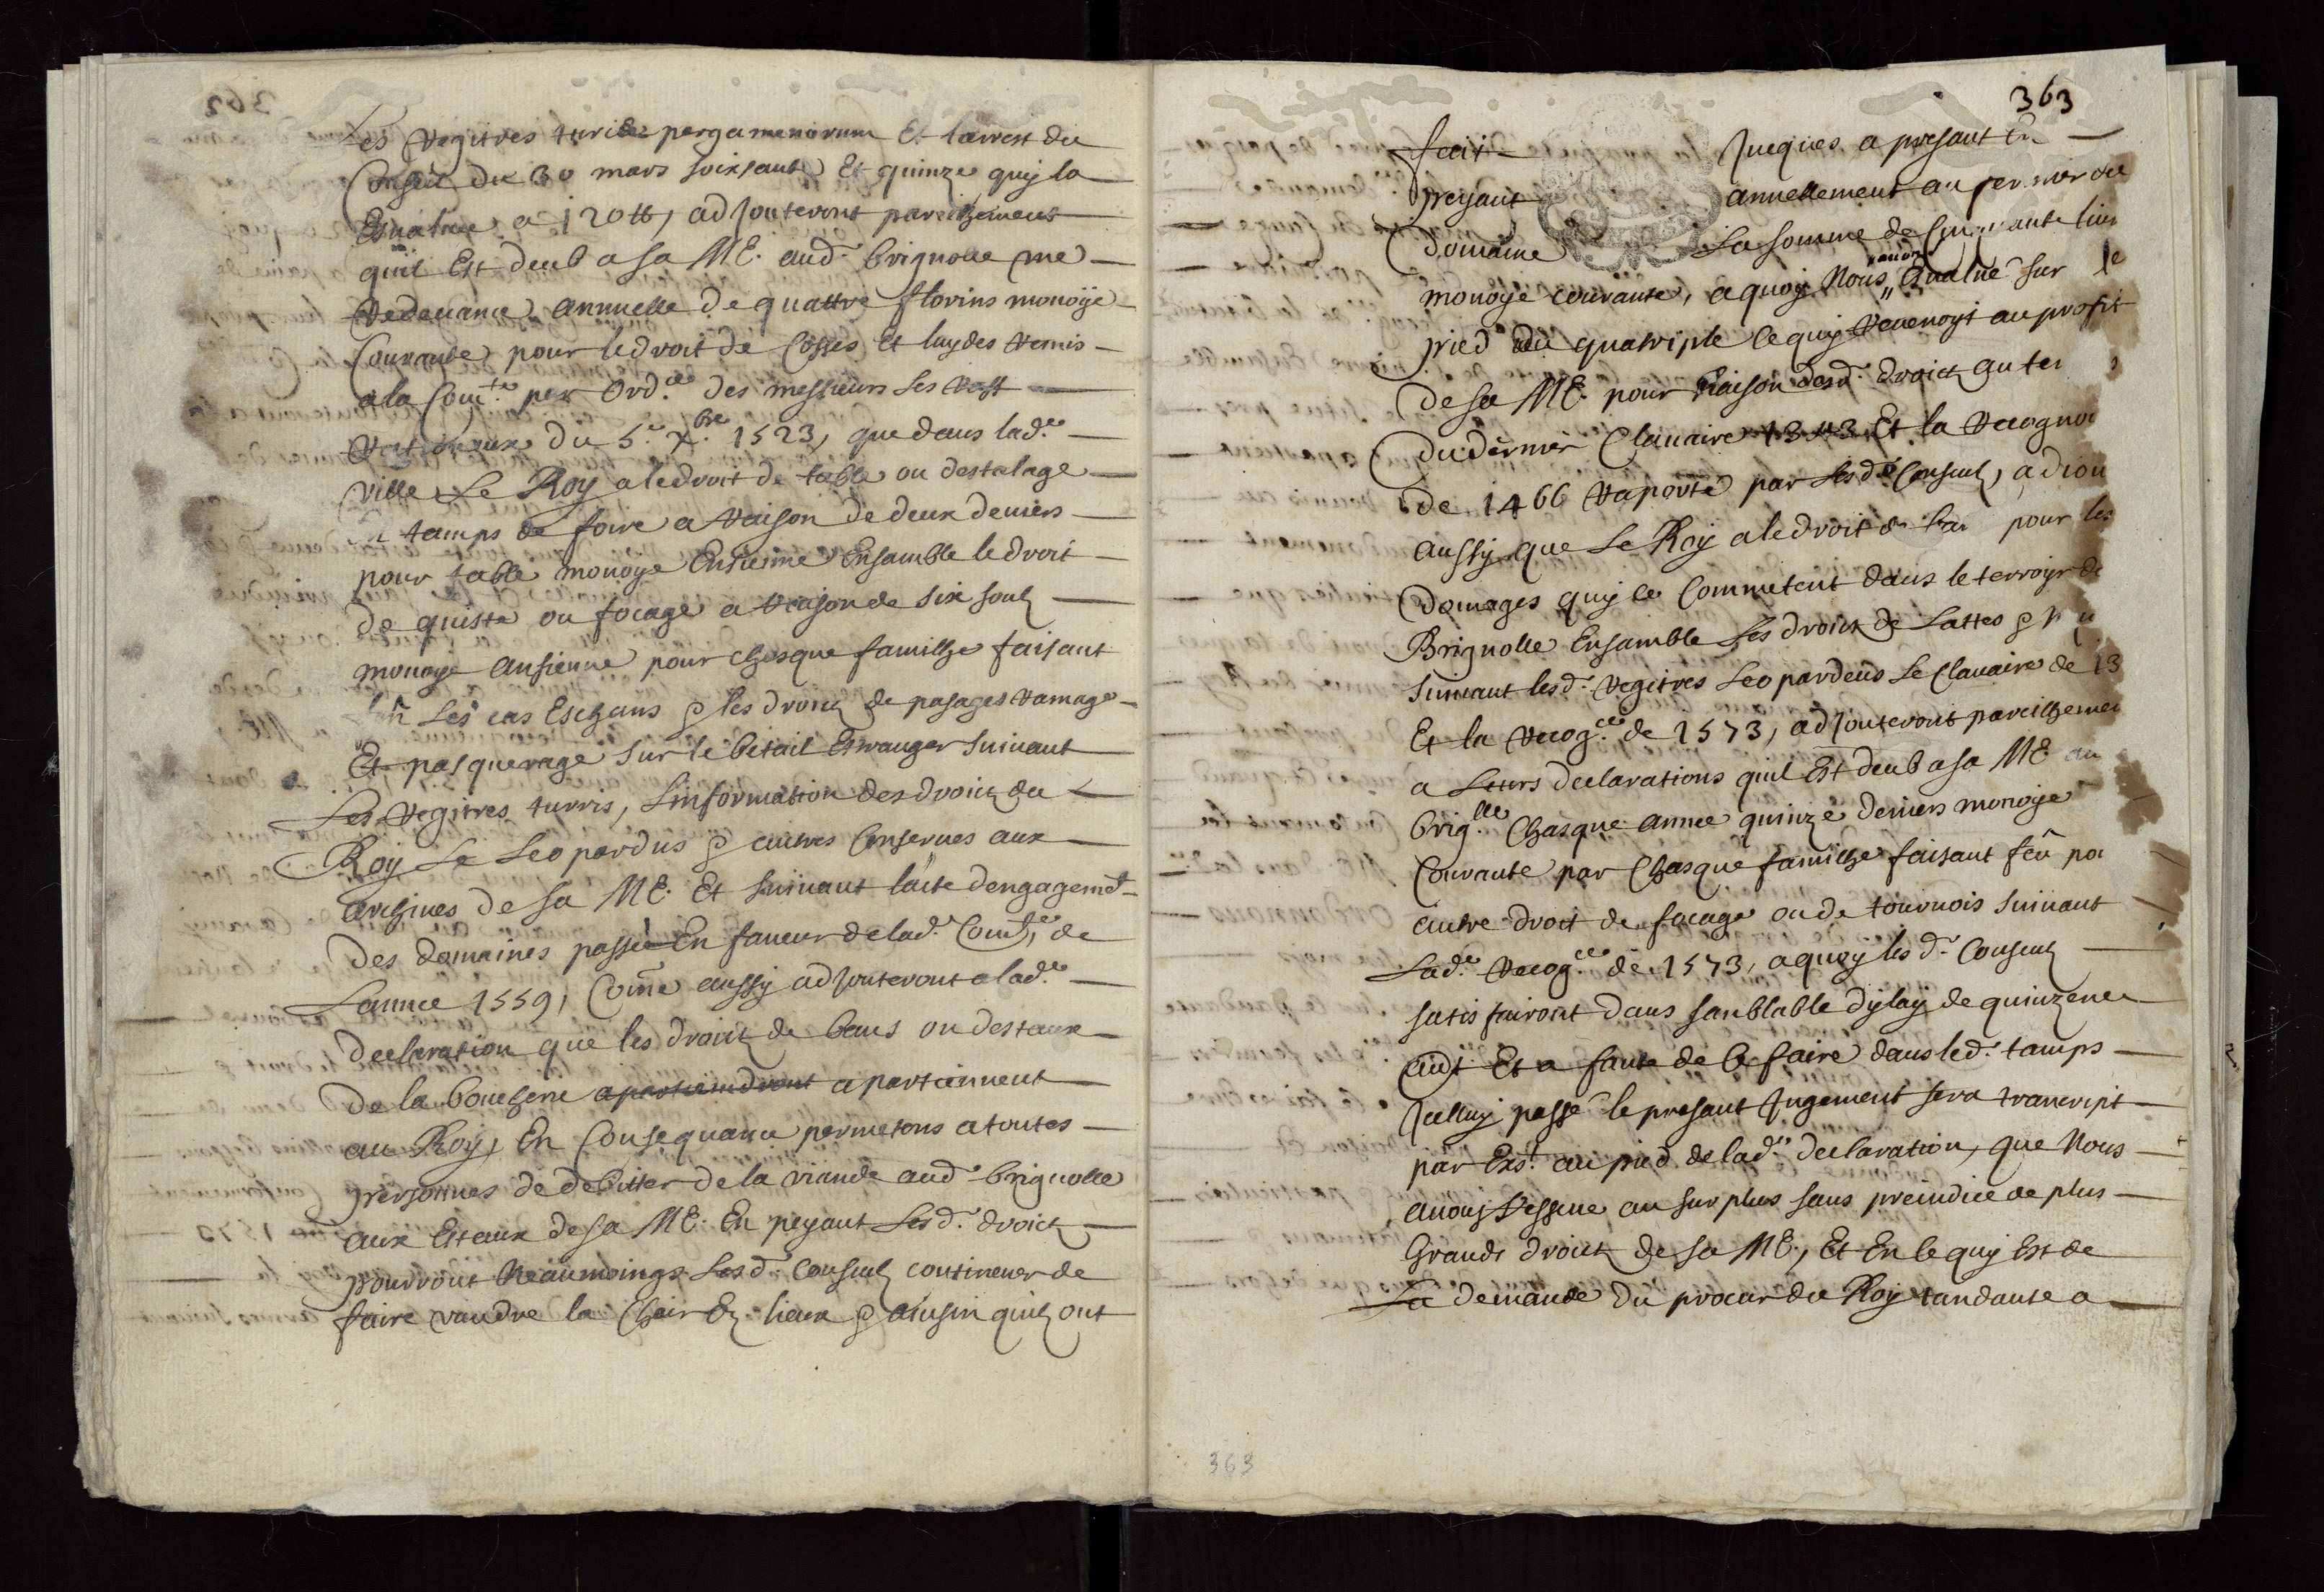 Les regitres turis pergamenorum Et larrest du
Conseil du 30 mars soixsante Et quinze quy la
Esvalue a 120 tt, adjouteront pareilhement
quil Est deub a sa ME. aud. brignolle une
redevance annuelle de quattre florins monoÿe
Courante pour le droit de Cosses Et laydes remis
a la Com.te par Ord.ce des messieurs Les
rationaux du 5.e X.bre 1523, que dans lad.e
ville Le Roy a le droit de table ou destalage
En tamps de foire a raison de deux deniers
pour table monoye Ensienne Ensamble le droit
de quiste ou focage a raison de six soulz
monoye ansienne pour chasque familhe faisant
Les cas Escheans & les droitz de pasages ramage
Et pasquerage sur le betail Estranger suivant
Les regitres turris, Linformation des droitz du
Roy Le Leopardus & autres Conserves aux
archives de sa ME. Et suivant lacte dengagemet
des domaines passé En faveur de lad. Com.té, de
Lannee 1559, Comē aussy adjouteront a lad.e
declaration que les droitz de bans ou destaux
de la boucherie apartiendront apartienent
au Roy, En Consequance permetons a toutes
personnes de debitter de la viande aud. brignolle
aux Estaux de sa ME. En peyant Lesd. droict
pourront Neaumoings Lesd. Consulz continuer de
faire vandre la Chair Ez lieux & ainsin quilz ont
363
fait Jucques a presant En
peyant annuellement au fermier du
Domaine La somme de Cinquante liv
monoye courante, a quoy Nous avons Esvalué sur le
pied du quatriple ce quy revenoyt au profit
de sa ME. pour raison desd. droictz au ter
du dernier Clavaire 1343 Et la recogno
de 1466 raporté par Lesd. Consulz, adjou
aussy que Le Roy a le droit de ban pour les
domages quy ce Commetent dans le terroyr de
Brignolle Ensamble Les droict de Lattes &
suivant lesd. regitres Leopardeus Le Clavaire de 13
Et la recog.ce de 1573, adjouteront pareilhemen
a Leurs declarations quil Est deub a sa ME au
brig.lle Chasque annee quinze deniers monoye
Courante par Chasque familhe faisant feū
autre droit de focage ou de tournois suivant
Lad.e recog.ce de 1573, a quoy les d. Consulz
satisfairont dans sanblable dylay de quinzene
aud.t Et a faute de ce faire dans led. tamps
Jcelluy passé le presant Jugement sera transcript
par Exst. au pied de lad.e declaration, que Nous
avons Ressue au surplus sans preiudice de plus
Grands droictz de sa ME, Et En ce quy Est de
La demande du procur du Roy tandante a
363